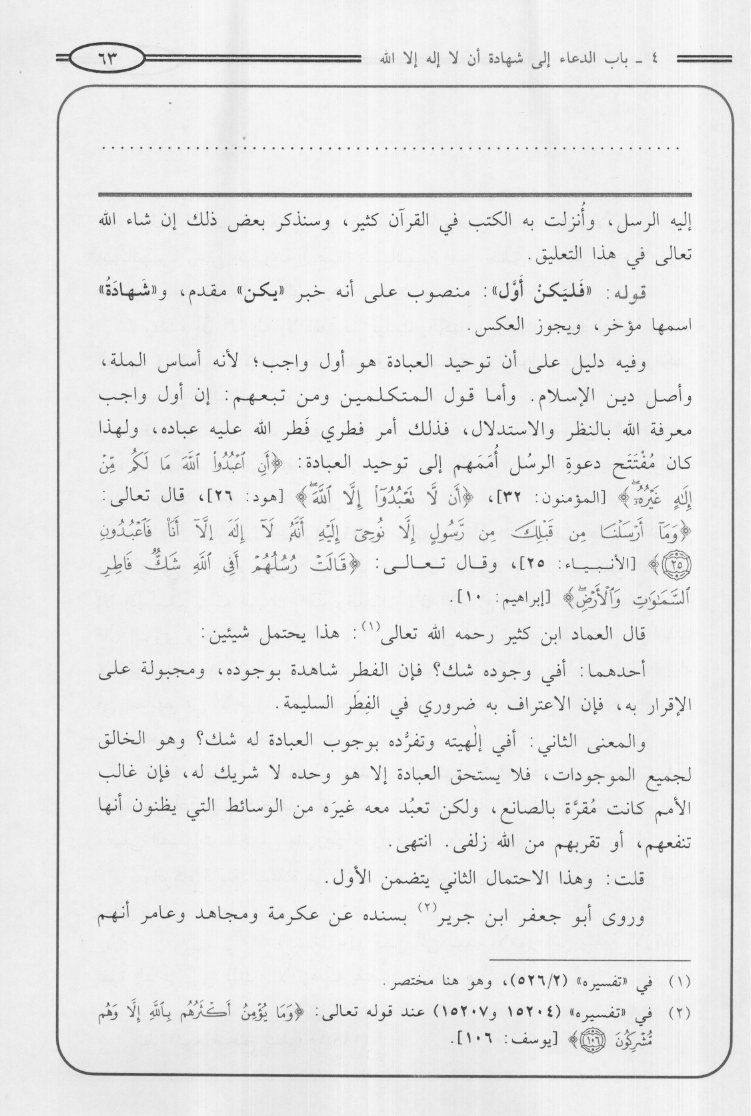 ٤ ـ باب الدعاء إلى شهادة أن لا إله إلا الله
٦٣
إليه الرسل، وأُنزلت به الكتب في القرآن كثير، وسنذكر بعض ذلك إن شاء الله
تعالى في هذا التعليق.
قوله: «فَليَكنْ أَوَّل»: منصوب على أنه خبر «يكن» مقدم، و«شَهادَةُ»
اسمها مؤخر، ويجوز العكس.
وفيه دليل على أن توحيد العبادة هو أول واجب؛ لأنه أساس الملة،
وأصل دين الإسلام. وأما قول المتكلمين ومن تبعهم: إن أول واجب
معرفة الله بالنظر والاستدلال، فذلك أمر فطري فَطر الله عليه عباده، ولهذا
كان مُفْتَتَح دعوةِ الرسُل أُمَمَهم إلى توحيد العبادة: ﴿أَنِ ٱعْبُدُوا۟ ٱللَّهَ مَا لَكُم مِّنْ
إِلَٰهٍ غَيْرُهُۥٓ﴾ [المؤمنون: ٣٢]، ﴿أَن لَّا تَعْبُدُوٓا۟ إِلَّا ٱللَّهَ﴾ [هود: ٢٦]، قال تعالى:
﴿وَمَآ أَرْسَلْنَا مِن قَبْلِكَ مِن رَّسُولٍ إِلَّا نُوحِىٓ إِلَيْهِ أَنَّهُۥ لَآ إِلَٰهَ إِلَّآ أَنَا۠ فَٱعْبُدُونِ
(٢٥)﴾ [الأنبياء: ٢٥]، وقال تعالى: ﴿قَالَتْ رُسُلُهُمْ أَفِى ٱللَّهِ شَكٌّ فَاطِرِ
ٱلسَّمَٰوَٰتِ وَٱلْأَرْضِ﴾ [إبراهيم: ١٠].
قال العماد ابن كثير رحمه الله تعالى(١): هذا يحتمل شيئين:
أحدهما: أفي وجوده شك؟ فإن الفطر شاهدة بوجوده، ومجبولة على
الإقرار به، فإن الاعتراف به ضروري في الفِطَر السليمة.
والمعنى الثاني: أفي إلٰهيته وتفرُّده بوجوب العبادة له شك؟ وهو الخالق
لجميع الموجودات، فلا يستحق العبادة إلا هو وحده لا شريك له، فإن غالب
الأمم كانت مُقرَّة بالصانع، ولكن تعبُد معه غيرَه من الوسائط التي يظنون أنها
تنفعهم، أو تقربهم من الله زلفى. انتهى.
قلت: وهذا الاحتمال الثاني يتضمن الأول.
وروى أبو جعفر ابن جرير(٢) بسنده عن عكرمة ومجاهد وعامر أنهم
(١) في «تفسيره» (٥٢٦/٢)، وهو هنا مختصر.
(٢) في «تفسيره» (١٥٢٠٤ و١٥٢٠٧) عند قوله تعالى: ﴿وَمَا يُؤْمِنُ أَكْثَرُهُم بِٱللَّهِ إِلَّا وَهُم
مُّشْرِكُونَ (١٠٦)﴾ [يوسف: ١٠٦].